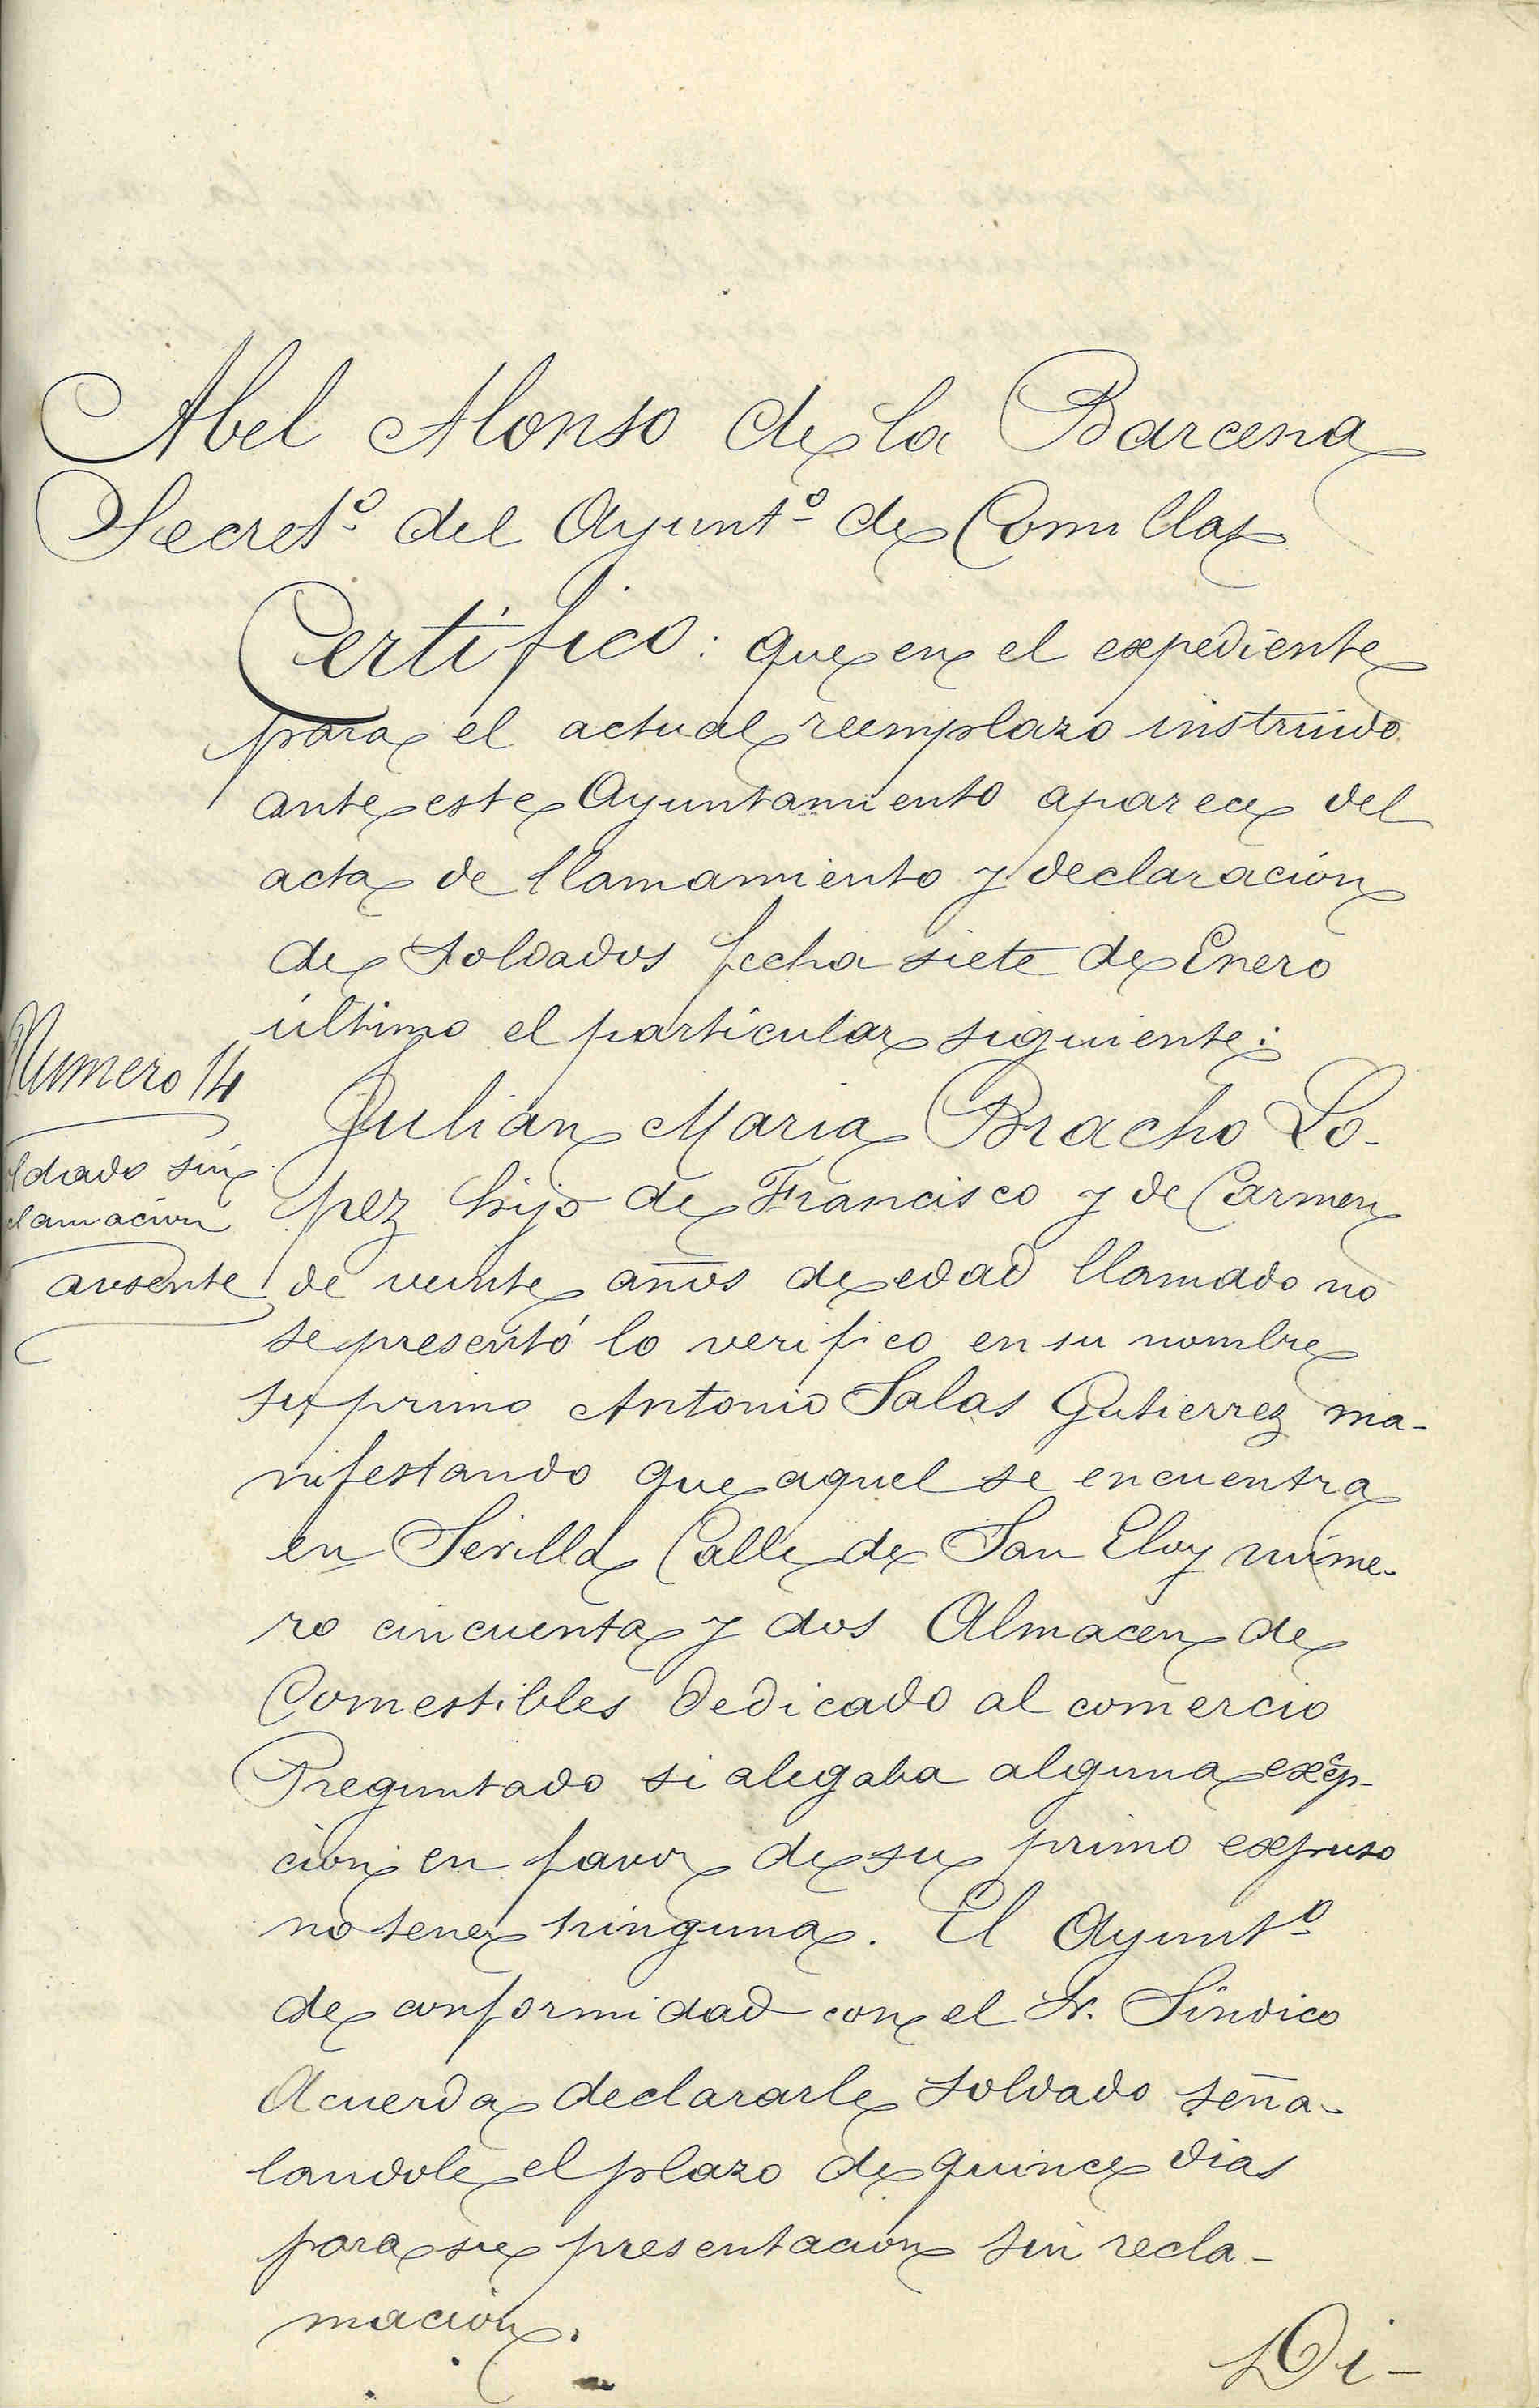 Abel Alonso de la Barcena
Secretº del Ayuntº de Comillas
Certifico: que en el expediente
para el actual reemplazo instruido
ante este Ayuntamiento aparece del
acta de llamamiento y declaración
de soldados fecha siete de Enero
último el particular siguiente:
Numero 14
ldado sin
clamación
ausente
Julian Maria Bracho Lo-
pez hijo de Francisco y de Carmen
de veinte años de edad llamado no
se presentó lo verifico en su nombre
su primo Antonio Salas Gutierrez ma-
nifestando que aquel se encuentra
en Sevilla Calle de San Eloy núme-
ro cincuenta y dos Almacen de
Comestibles dedicado al comercio
Preguntado si alegaba alguna excep-
cion en favor de su primo expuso
no tener ninguna. El Ayuntº
de conformidad con el Sr. Síndico
Acuerda declararle soldado seña-
landole el plazo de quince dias
para su presentacion sin recla-
macion.
Di-